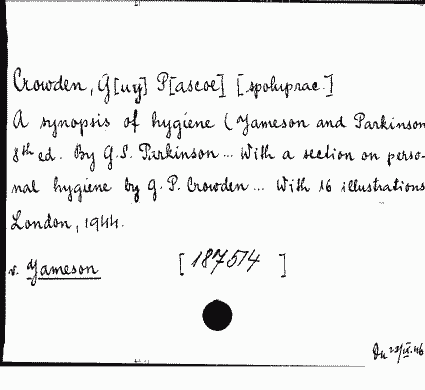 Crowden, G[uy] P[ascoe] [spoluprac.]
A synopsis of hygiene (Jameson and Parkinson
8th ed. By G.S. Parkinson ... With a section on perso-
nal hygiene by G.P. Crowden ... With 16 illustrations
London, 1944.
v. Jameson [187514]
Du 23/IX.46